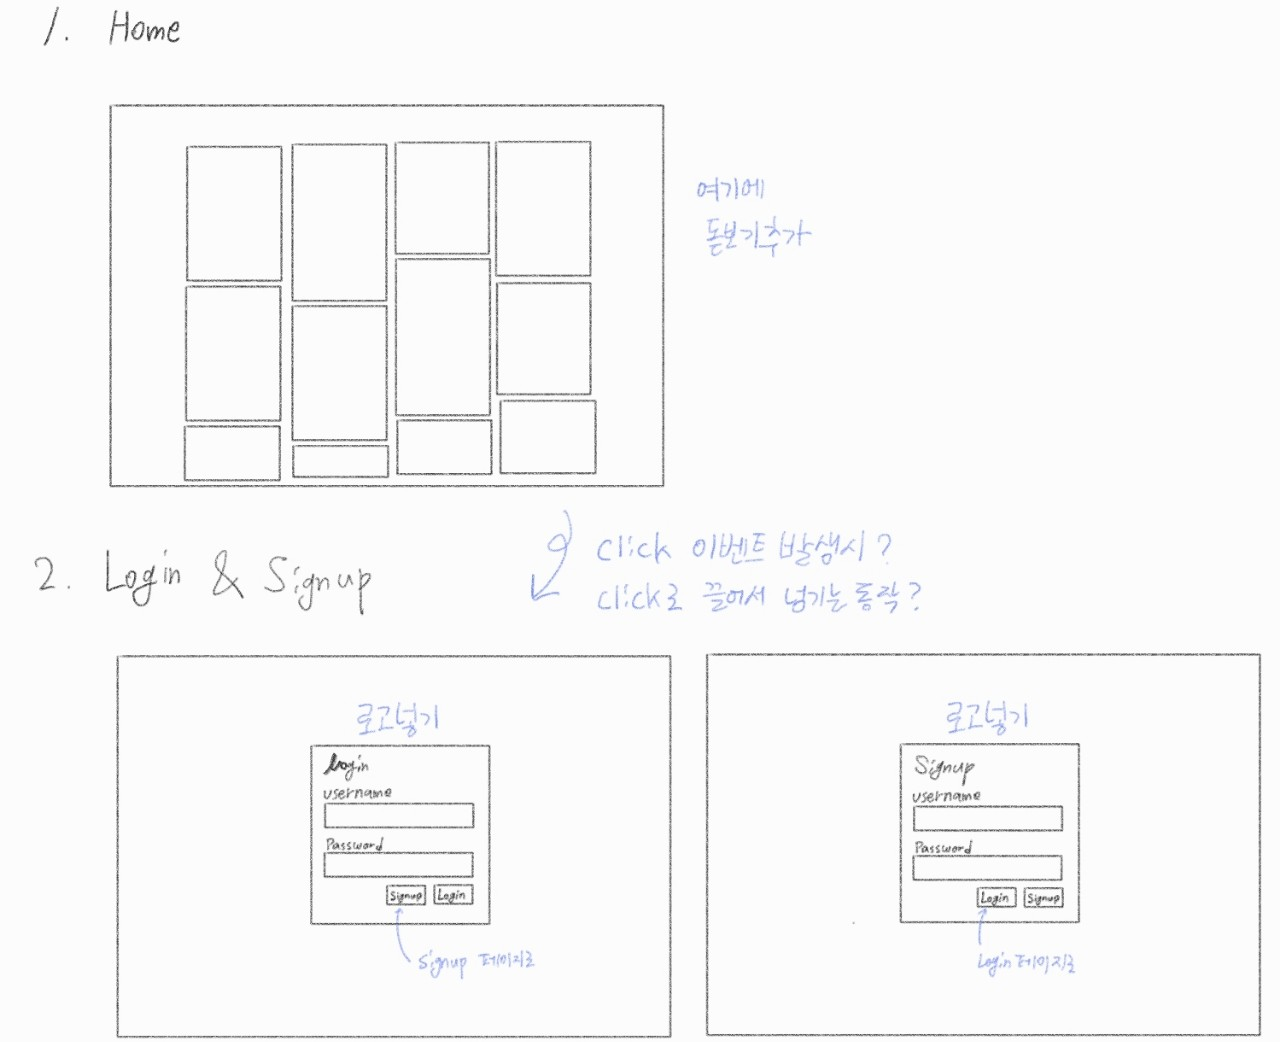 1. Home
여기에
돋보기추가
click 이벤트 발생시?
click로 끌어서 넘기는 동작?
2. Login & Signup
로고넣기
Login
username
Password
Signup Login
Signup 페이지로
로고넣기
Signup
username
Password
Login Signup
Login 페이지로